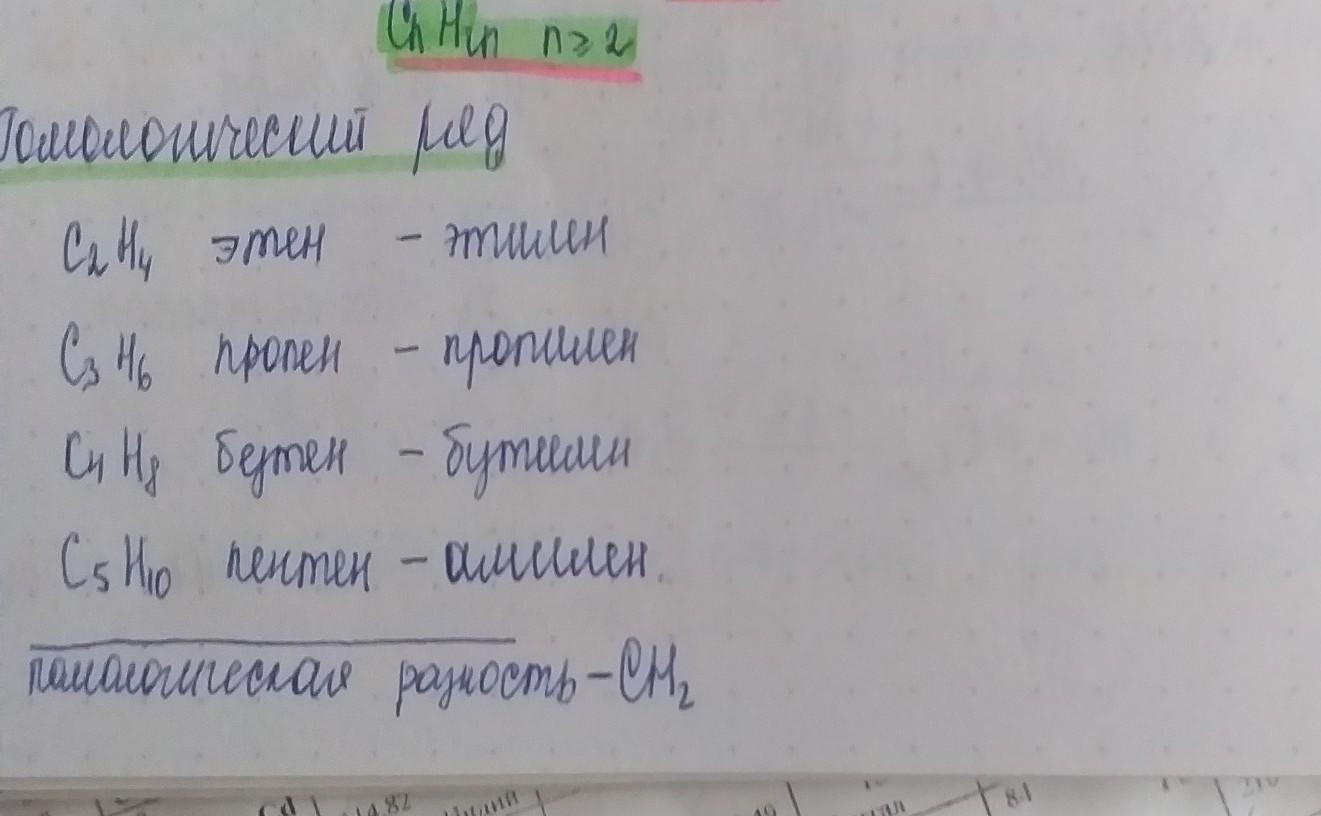 CnH2n n≥2
Гомологический ряд
C2H4 этен – этилен
C3H6 пропен – пропилен
C4H8 бутен – бутилен
C5H10 пентен – амилен.
гомологическая разность – CH2
Cd 81